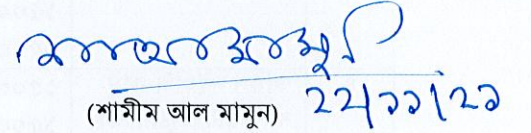 (শামীম আল মামুন) ২২|১১|২১